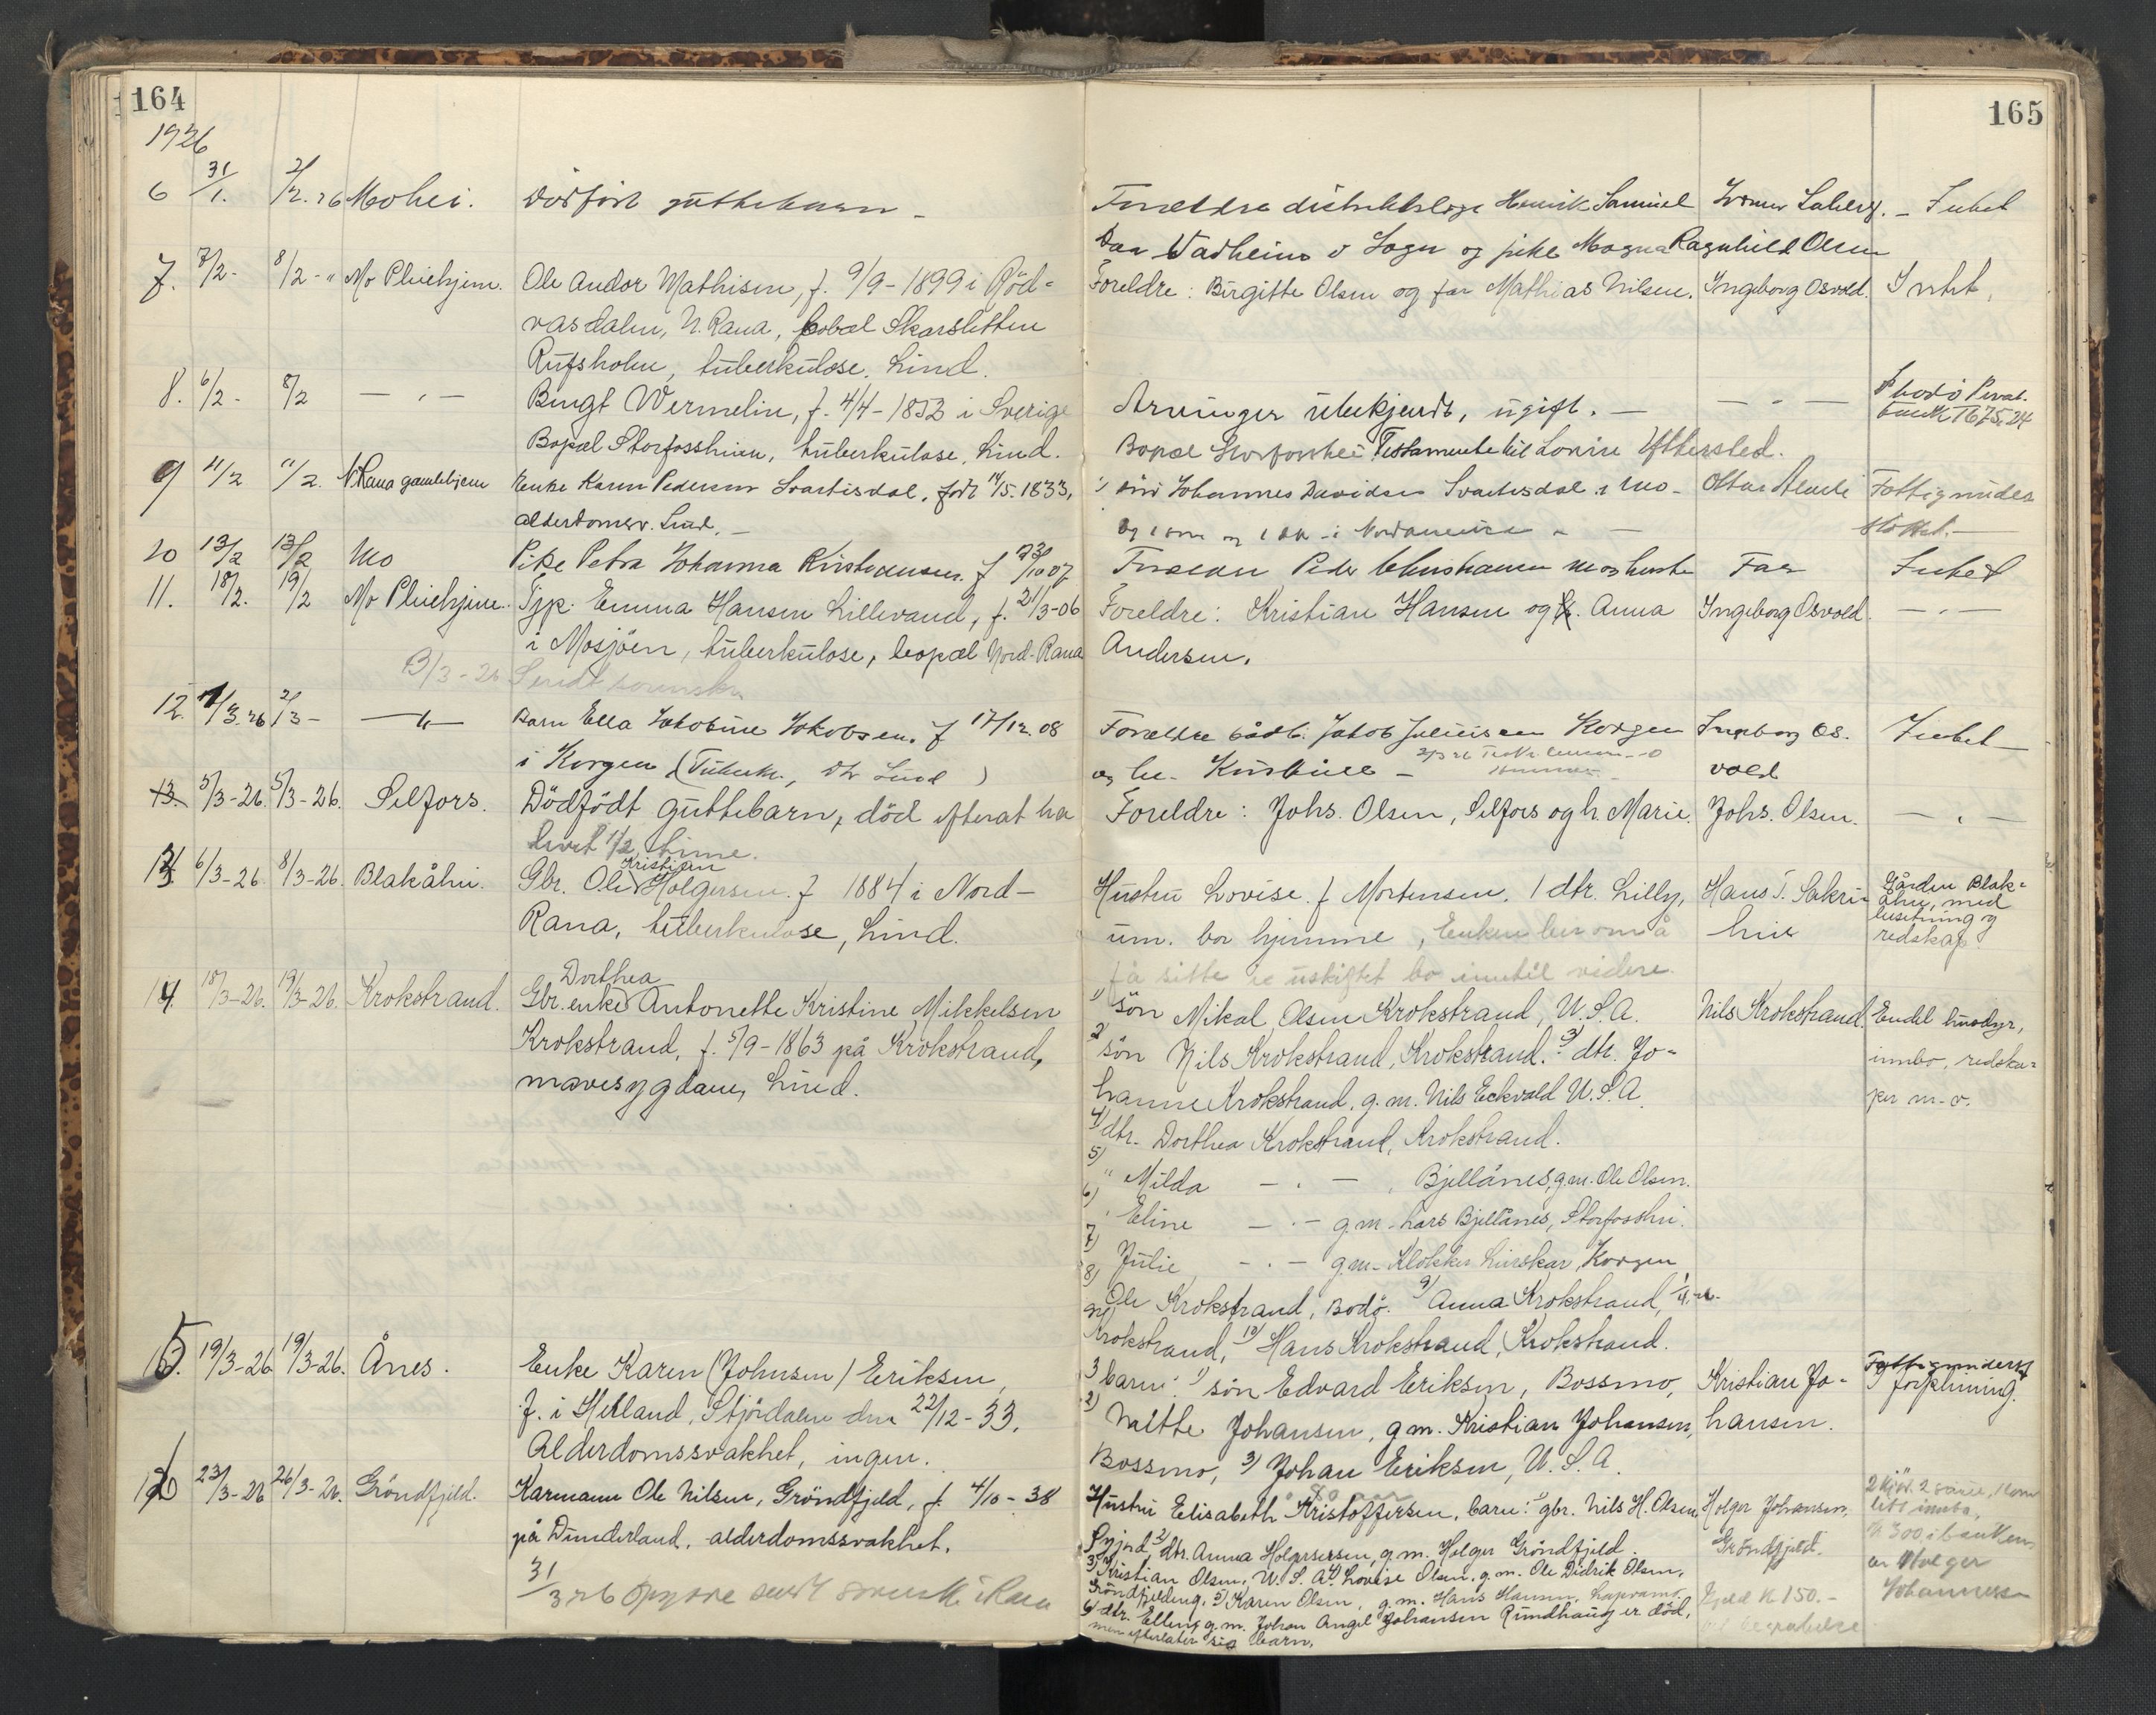 164
1926
6 31/1. 2/2.26 Mohei. Dødfødt guttebarn -
7. 7/2- 8/2-" Mo Pleiehjem. Ole Andor Mathisen, f. 9/9-1899 i Röd-
vasdalen, N. Rana, bopæl Skarsletten
Rufsholm, tuberkulose. Lund.
8. 6/2- 8/2 — " — Bengt Wermelin, f. 4/4-1853 i Sverige
Bopæl Storfosshien, tuberkulose, Lund.
9 11/2 11/2. N Rana gamlehjem Enke Karen Pedersen Svartisdal, født 14/5.1833,
alderdomssv. Lund. -
10 13/2 13/2 Mo Pike Petra Johanna Kristiansen. f 23/10 07
11. 18/2. 19/2 Mo Pleiehjem. Tjp. Emma Hansen Lillevand, f. 21/3-06
i Mosjöen, tuberkulose, bopæl Nord-Rana
3/3-26 Sendt
12. 1/3.26 2/3- — " — Barn Ella Jakobine Jakobsen. f 17/12.08
i Korgen (Tuberk., Dr Lund)
13. 5/3-26. 5/3-26. Selfors. Dödfödt guttebarn, död efterat ha
levet 1/2 time.
13. 6/3-26. 8/3-26. Blakåhei. Gbr. Ole Kristian Holgersen. f 1884 i Nord-
Rana, tuberkulose, Lund.
14. 18/3-26. 19/3-26. Krokstrand. Gbr. enke Dorthea Antonette Kristine Mikkelsen
Krokstrand, f. 5/9-1863 på Krokstrand,
mavesygdom, Lund.
15. 19/3-26 19/3-26. Ånes. Enke Karen (Johnsen) Eriksen,
f. i Hegland, Stjördalen den 22/12-33.
Alderdomssvakhet, ingen.
16 23/3-26 26/3-26. Gröndfjeld. Kærmann Ole Nilsen, Gröndfjeld, f. 4/10-38
på Dunderland, alderdomssvakhet.
31/3 26 Opgave sendt
165
Forældre distriktslæge Henrik Samuel
Daa Vadheim i Sogn og pike Magna Ragnhild Olsen
- Intet
Foreldre: Birgitte Olsen og far Mathias Nilsen. Ingeborg Osvold. Intet.
Arvinger ubekjendt, ugift. — — " — I Bodø Privat-
bank 1675,24
Bopæl Storfoshei Testamente til Lovise Yttersted.
1) sön Johannes Davidsen Svartisdal i Mo- Fattigunder
støttet. -
og 1 sön og 1 dtr - i Nordamerika -
Forældre Peder Christiansen Far Intet
Foreldre: Kristian Hansen og h. Anna Ingeborg Osvold. — " —
Andersen.
Forældre Jakob Juliussen Korgen Ingeborg Os- Intet
og h. Kristine - vold
Foreldre: Johs. Olsen, Selfors og h. Marie. Johs. Olsen. — " —
Hustru Lovise. f Mortensen. 1 dtr. Lilly, Hans T. Sakri- Gården Blak-
åhei, med
besetning og
redskap
um. bor hjemme, Enken ber om å
få sitte i uskiftet bo inntil videre.
1) sön Mikal Olsen Krokstrand, U.S.A. Nils Krokstrand. Endel husdyr,
2) sön Nils Krokstrand, Krokstrand. 3) dtr. Jo- innbo, redska-
hanne Krokstrand, g.m. Nils Eckvold U.S.A. per m.v.
4) dtr. Dorthea Krokstrand, Krokstrand.
5) " Milda — " —, Bjellånes, g.m. Ole Olsen.
6) " Eline — " — g.m. Lars Bjellånes, Storfosshei.
7) Julie — " — g.m. Klokker Lurskar, Korgen
8) Ole Krokstrand, Bodö. 9) Anna Krokstrand,
Krokstrand, 10) Hans Krokstrand, Krokstrand.
3 barn: 1) sön Edvard Eriksen, Bossmo, Kristian Jo- Fattigunderst
forpleining.
2) Mette Johansen, g.m. Kristian Johansen, hansen.
Bossmo, 3) Johan Eriksen, U.S.A.
80 aar
Hustru Elisabeth Kristoffersen, barn: 1) gbr. Nils H. Olsen Holger Johansen,
2) dtr. Anna Holgersen, g.m. Holger Gröndfjeld. Gröndfjeld.
3) Kristian Olsen, U.S.A. 4) Lovise Olsen, g.m. Ole Didrik Olsen,
Gröndfjeldeng, 5) Karen Olsen, g.m. Hans Hansen,
6) dtr. Ellen, g.m. Johan Angel Johansen Rundhaug er död,
men efterlater sig barn.
Gjeld kr 150.-
til begravelse
2 kjör. 2 sauer,
litt innbo,
kr 300 i banken
av Holger
Johannesen